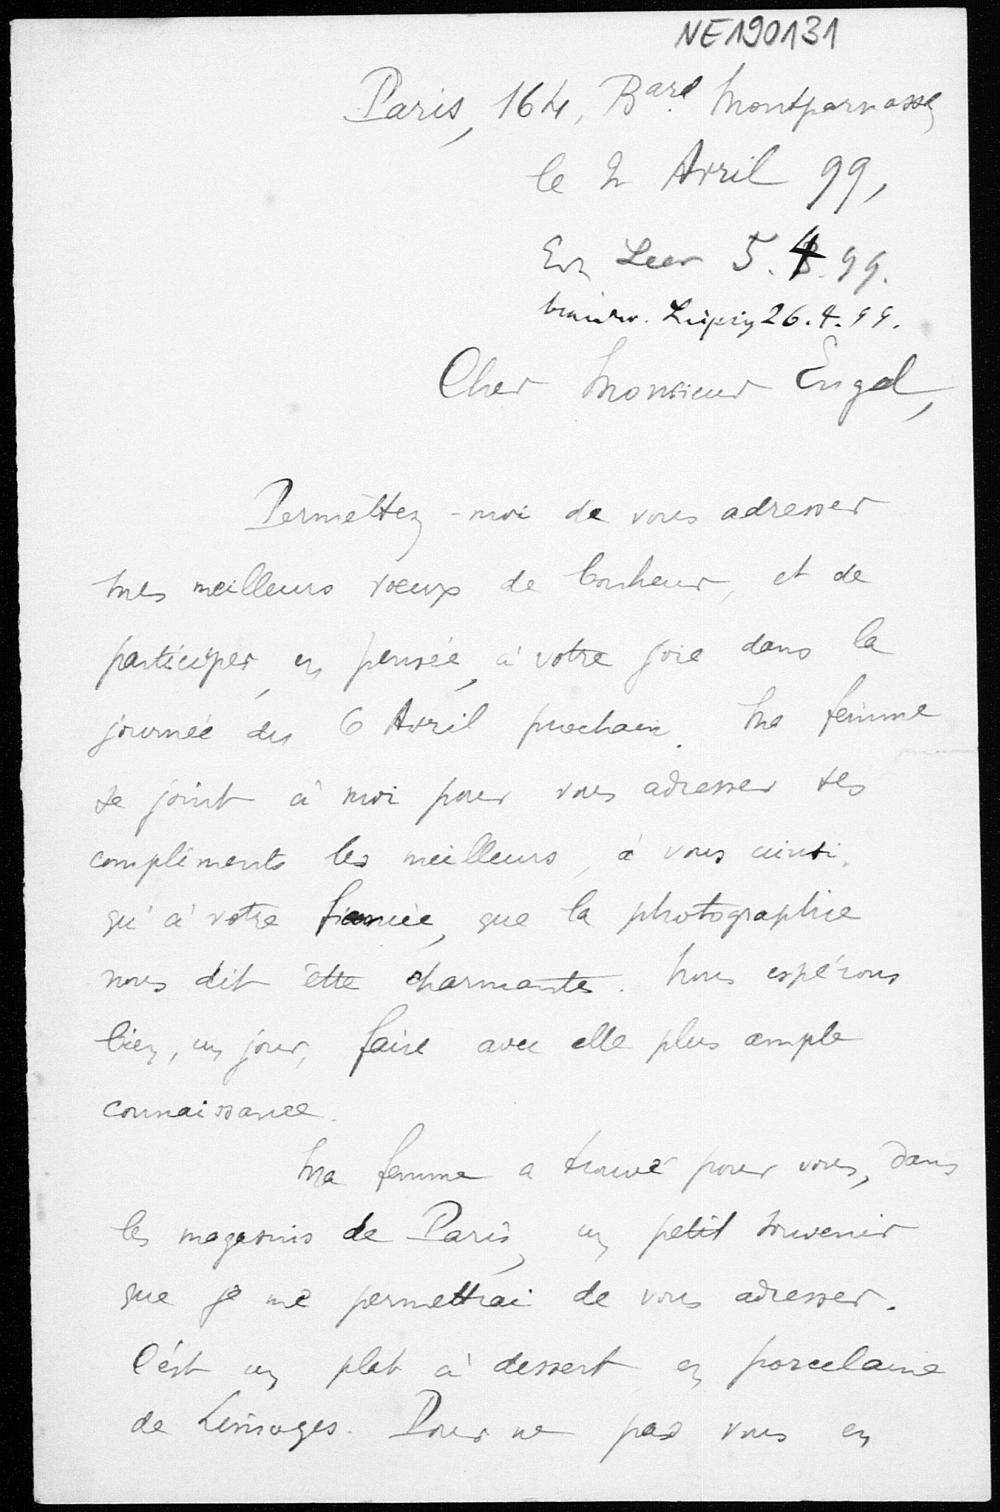 NE190131
Paris, 164, Bard Montparnasse,
le 2 Avril 99,
Leer 5.4.99.
Leipzig 26.4.99.
Cher Monsieur Engel,
Permettez-moi de vous adresser
mes meilleurs voeux de bonheur, et de
participer, en pensée, à votre joie dans la
journée du 6 Avril prochain. Ma femme
se joint à moi pour vous adresser ses
compliments les meilleurs, à vous ainsi
qu'à votre fiancée, que la photographie
nous dit être charmante. Nous espérons
bien, un jour, faire avec elle plus ample
connaissance.
Ma femme a trouvé pour vous, dans
les magasins de Paris, un petit souvenir
que je me permettrai de vous adresser.
C'est un plat à dessert en porcelaine
de Limoges. Pour ne pas vous en